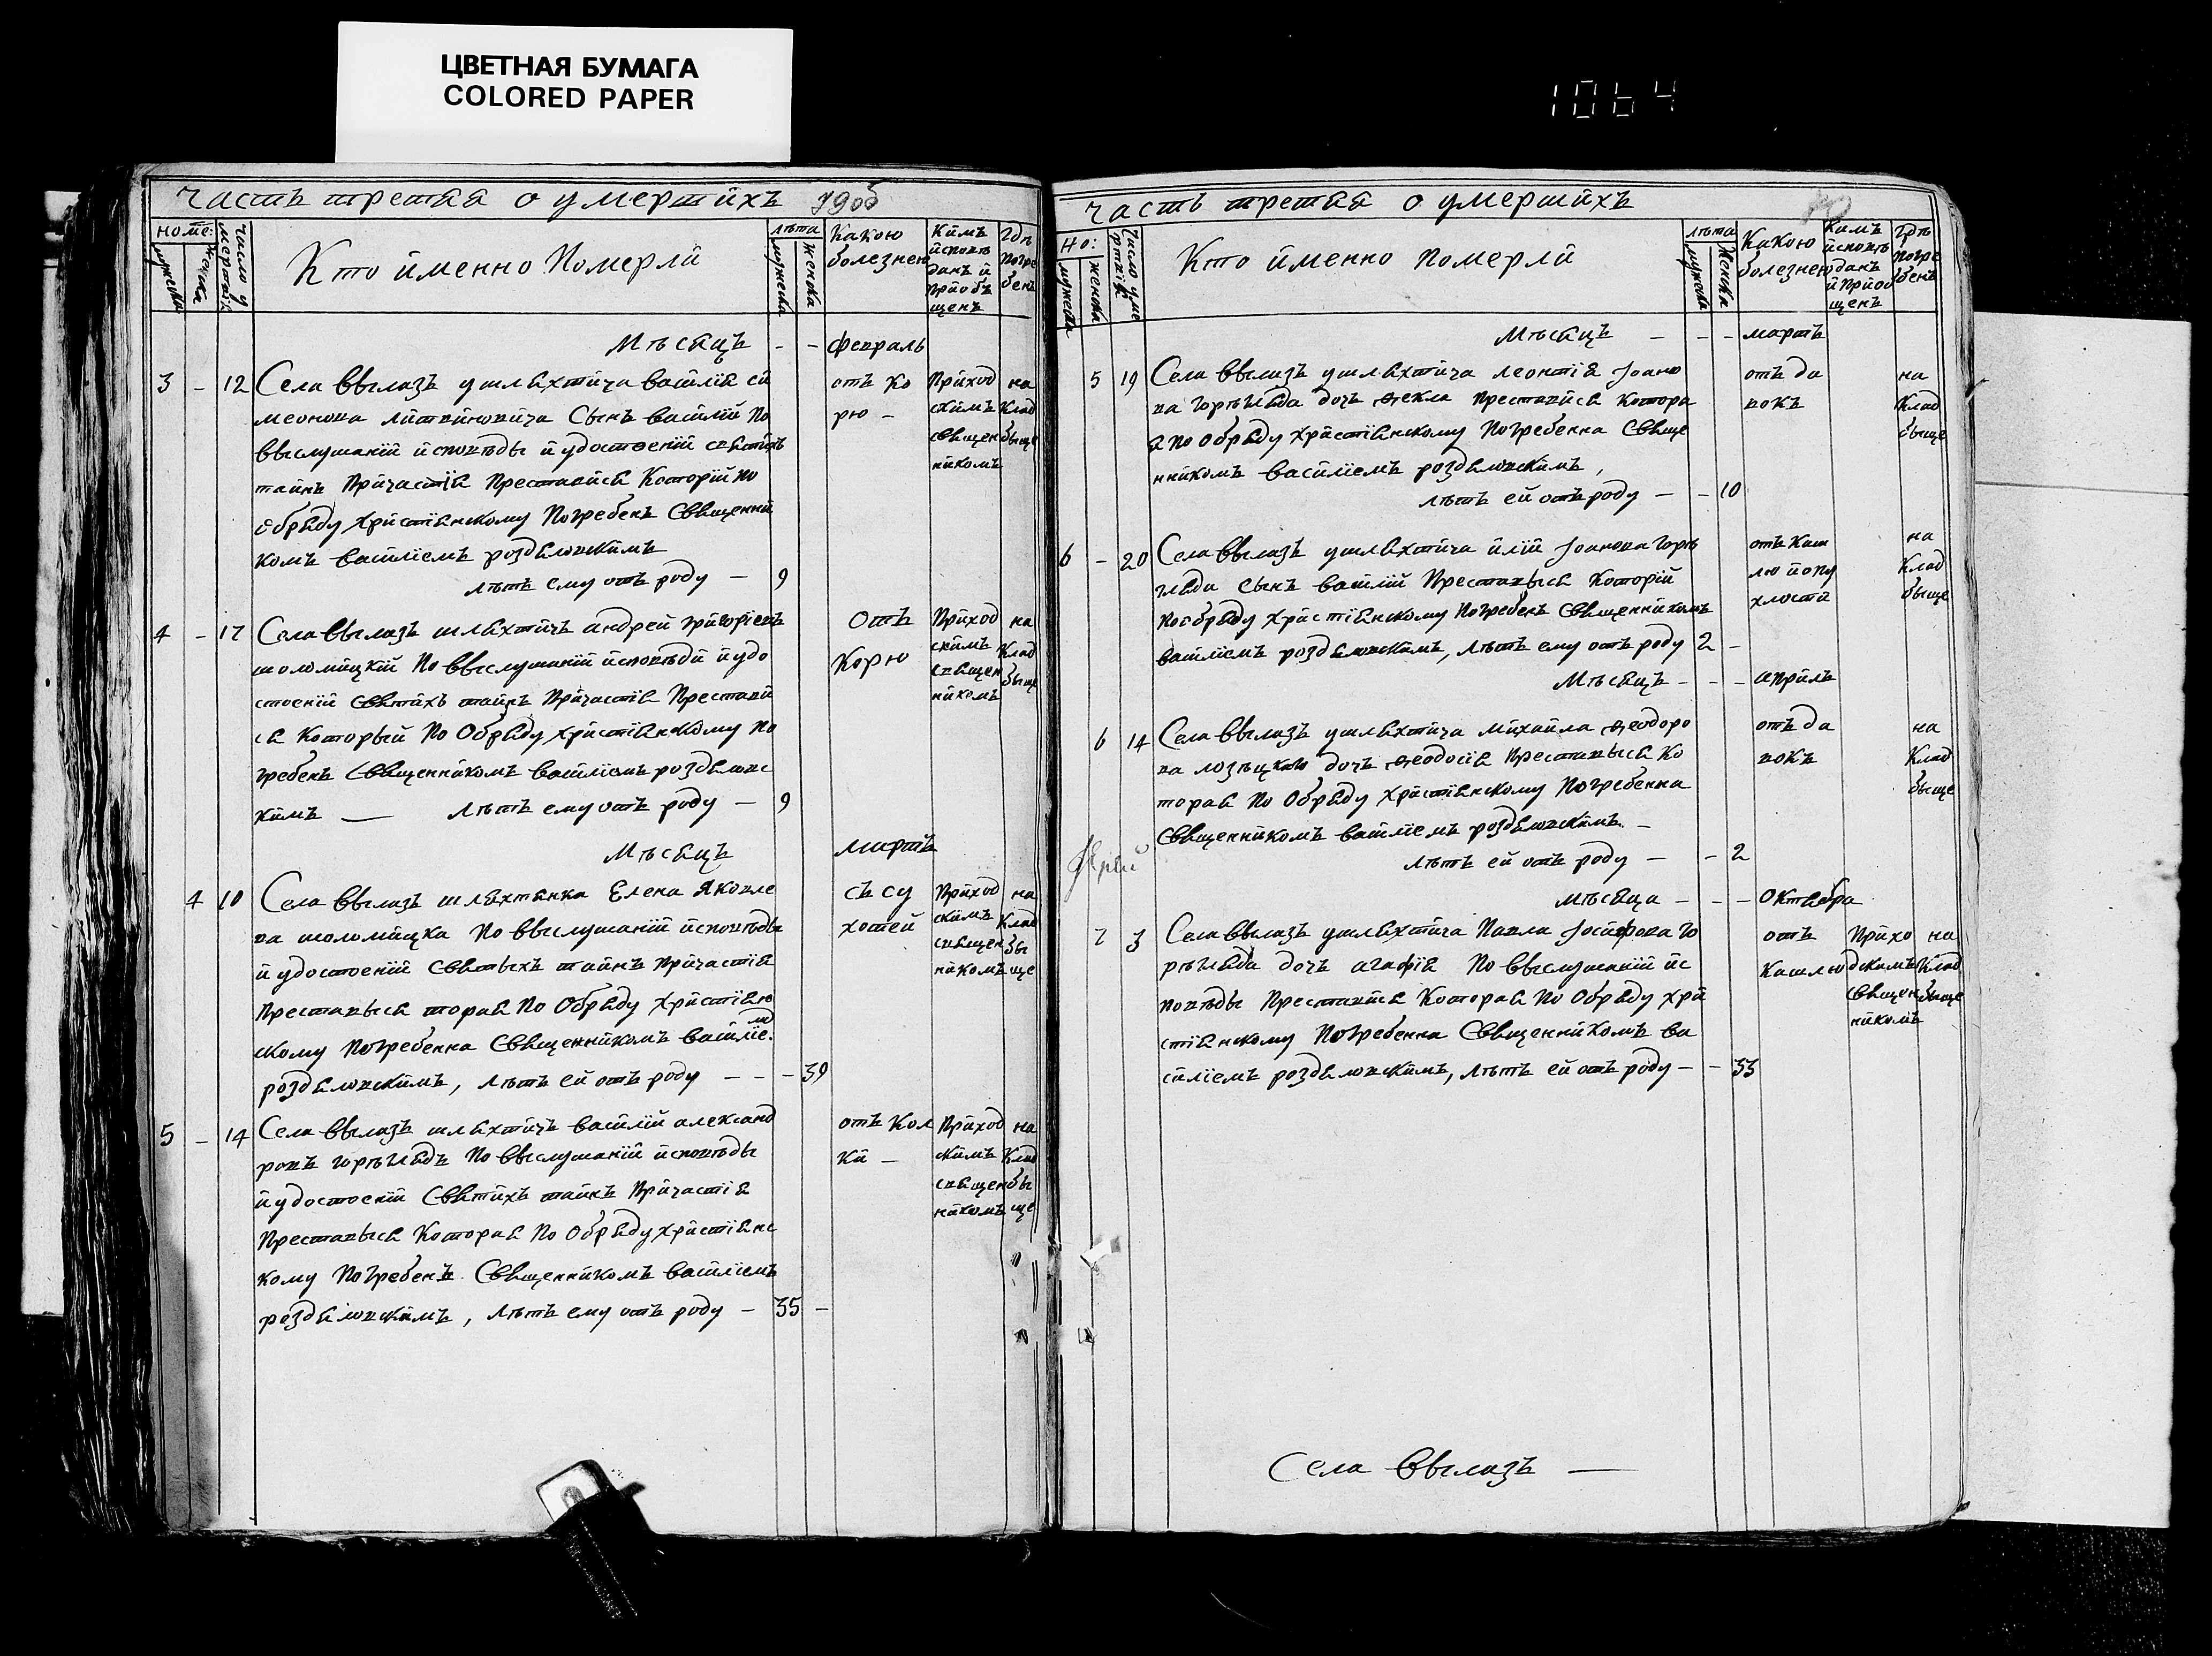 ЦВЕТНАЯ БУМАГА
COLORED PAPER
1064
Часть третяя о умершихъ
номе:
мужеска
женска
число умершихъ
Кто именно Померли
лѣта
мужеска
женска
Какою
болезнею
Кимъ
исповѣ
данъ и
приобъ
щенъ
Гдѣ
погре
бенъ
Мѣсяцъ - - февраль
3 - 12 Села Ввылазъ у шляхтича василія си
меонова литвиновича Сынъ василій По
ввыслушаніи исповѣды и удостоеніи святихъ
таинъ Причастія Преставися Которій по
обряду христіянскому Погребенъ Священни
комъ василіемъ
лѣтъ ему отъ роду — 9
отъ ко
рю —
Приход
скимъ
священ
никомъ
на
Клад
быще
4 - 17 Села Ввылазъ шляхтичъ андрей григоріевъ
шоломицкій По ввыслушаніи исповѣди и удо
стоеніи святихъ таинъ Причастія Престави
ся Который По Обряду христіянскому по
гребенъ Священникомъ василіемъ
кимъ — лѣтъ ему отъ роду — 9
Отъ
Корю
Приход
скимъ
священ
никомъ
на
Клад
быще
Мѣсяцъ мартъ
4 10 Села Ввылазъ шляхтянка Елена Яковле
ва шоломицка По ввыслушаніи исповѣды
и удостоеніи Святыхъ таинъ Причастія
Преставыся торая По Обряду Христіян
скому Погребенна Священникомъ василіем
лѣтъ ей отъ роду - - - 39
съ су
хотей
Приход
скимъ
священ
никомъ
на
Клад
бы
ще
5 - 14 Села Ввылазъ шляхтичъ василій александ
ровъ гореглядъ По ввыслушаніи исповѣды
и удостоеніи Святихъ таинъ Причастія
Преставыся Которая По Обряду христіянс
кому Погребенъ Священникомъ василіемъ
лѣтъ ему отъ роду — 35 —
отъ Кол
ки —
Приход
скимъ
священ
никомъ
на
Клад
бы
ще
Часть третяя о умершихъ
но:
мужеска
женска
Число умершихъ
Кто именно Померли
лѣта
мужеска
женска
Какою
болезнею
Кимъ
исповѣ
данъ
и приоб
щенъ
Гдѣ
погре
бенъ
Мѣсяцъ - - - мартъ
5 19 Села Ввылазъ у шляхтича леонтія Іоано
ва дочь Ѳекла Преставися Котора
я по обряду христіянскому Погребенна Свяще
нникомъ василіемъ
лѣтъ ей отъ роду — - 10
отъ да
вокъ
на
Клад
быще
6 - 20 Села Ввылазъ у шляхтича иліи Іоанова горе
гляда Сынъ василій Преставыся Которій
По обряду христіянскому Погребенъ Священникомъ
василіемъ лѣтъ ему отъ роду 2 -
отъ Каш
лю и опу
хлости
на
Клад
быще
Мѣсяцъ - - - априль
6 14 Села Ввылазъ у шляхтича михаила Ѳеодоро
ва дочь Ѳеодосія Преставыся Ко
торая По Обряду Христіянскому Погребенна
Священникомъ василіемъ —
лѣтъ ей отъ роду — - 2
отъ да
вокъ
на
Клад
быще
мѣсяца - - - Октября
7 3 Села Ввылазъ у шляхтича Павла Іосифова го
дочь агафія По ввыслушаніи ис
повѣды Преставися Которая По Обряду хри
стіянскому Погребенна Священникомъ ва
силіемъ лѣтъ ей отъ роду — - 33
отъ
Кашлю
Прихо
дскимъ
священ
никомъ
на
Клад
быще
Села Ввылазъ —